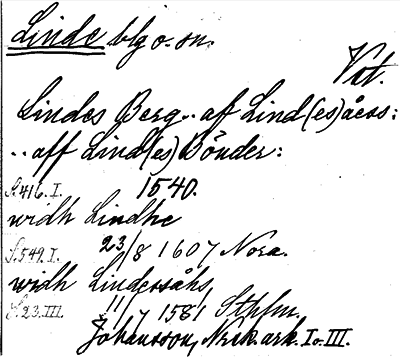 Linde blg o. sn.
Vst.
Lindes Berg .. af Lind(es)åess:
.. aff Lind(es) Bönder:
S. 416. I. 1540.
widh Lindhe
S. 549. I. 23/8 1607 Nora.
widh Lindessåhs,
S. 23. III. 11/7 1581 Sthfm.
Johansson, Noraskark. I o. III.